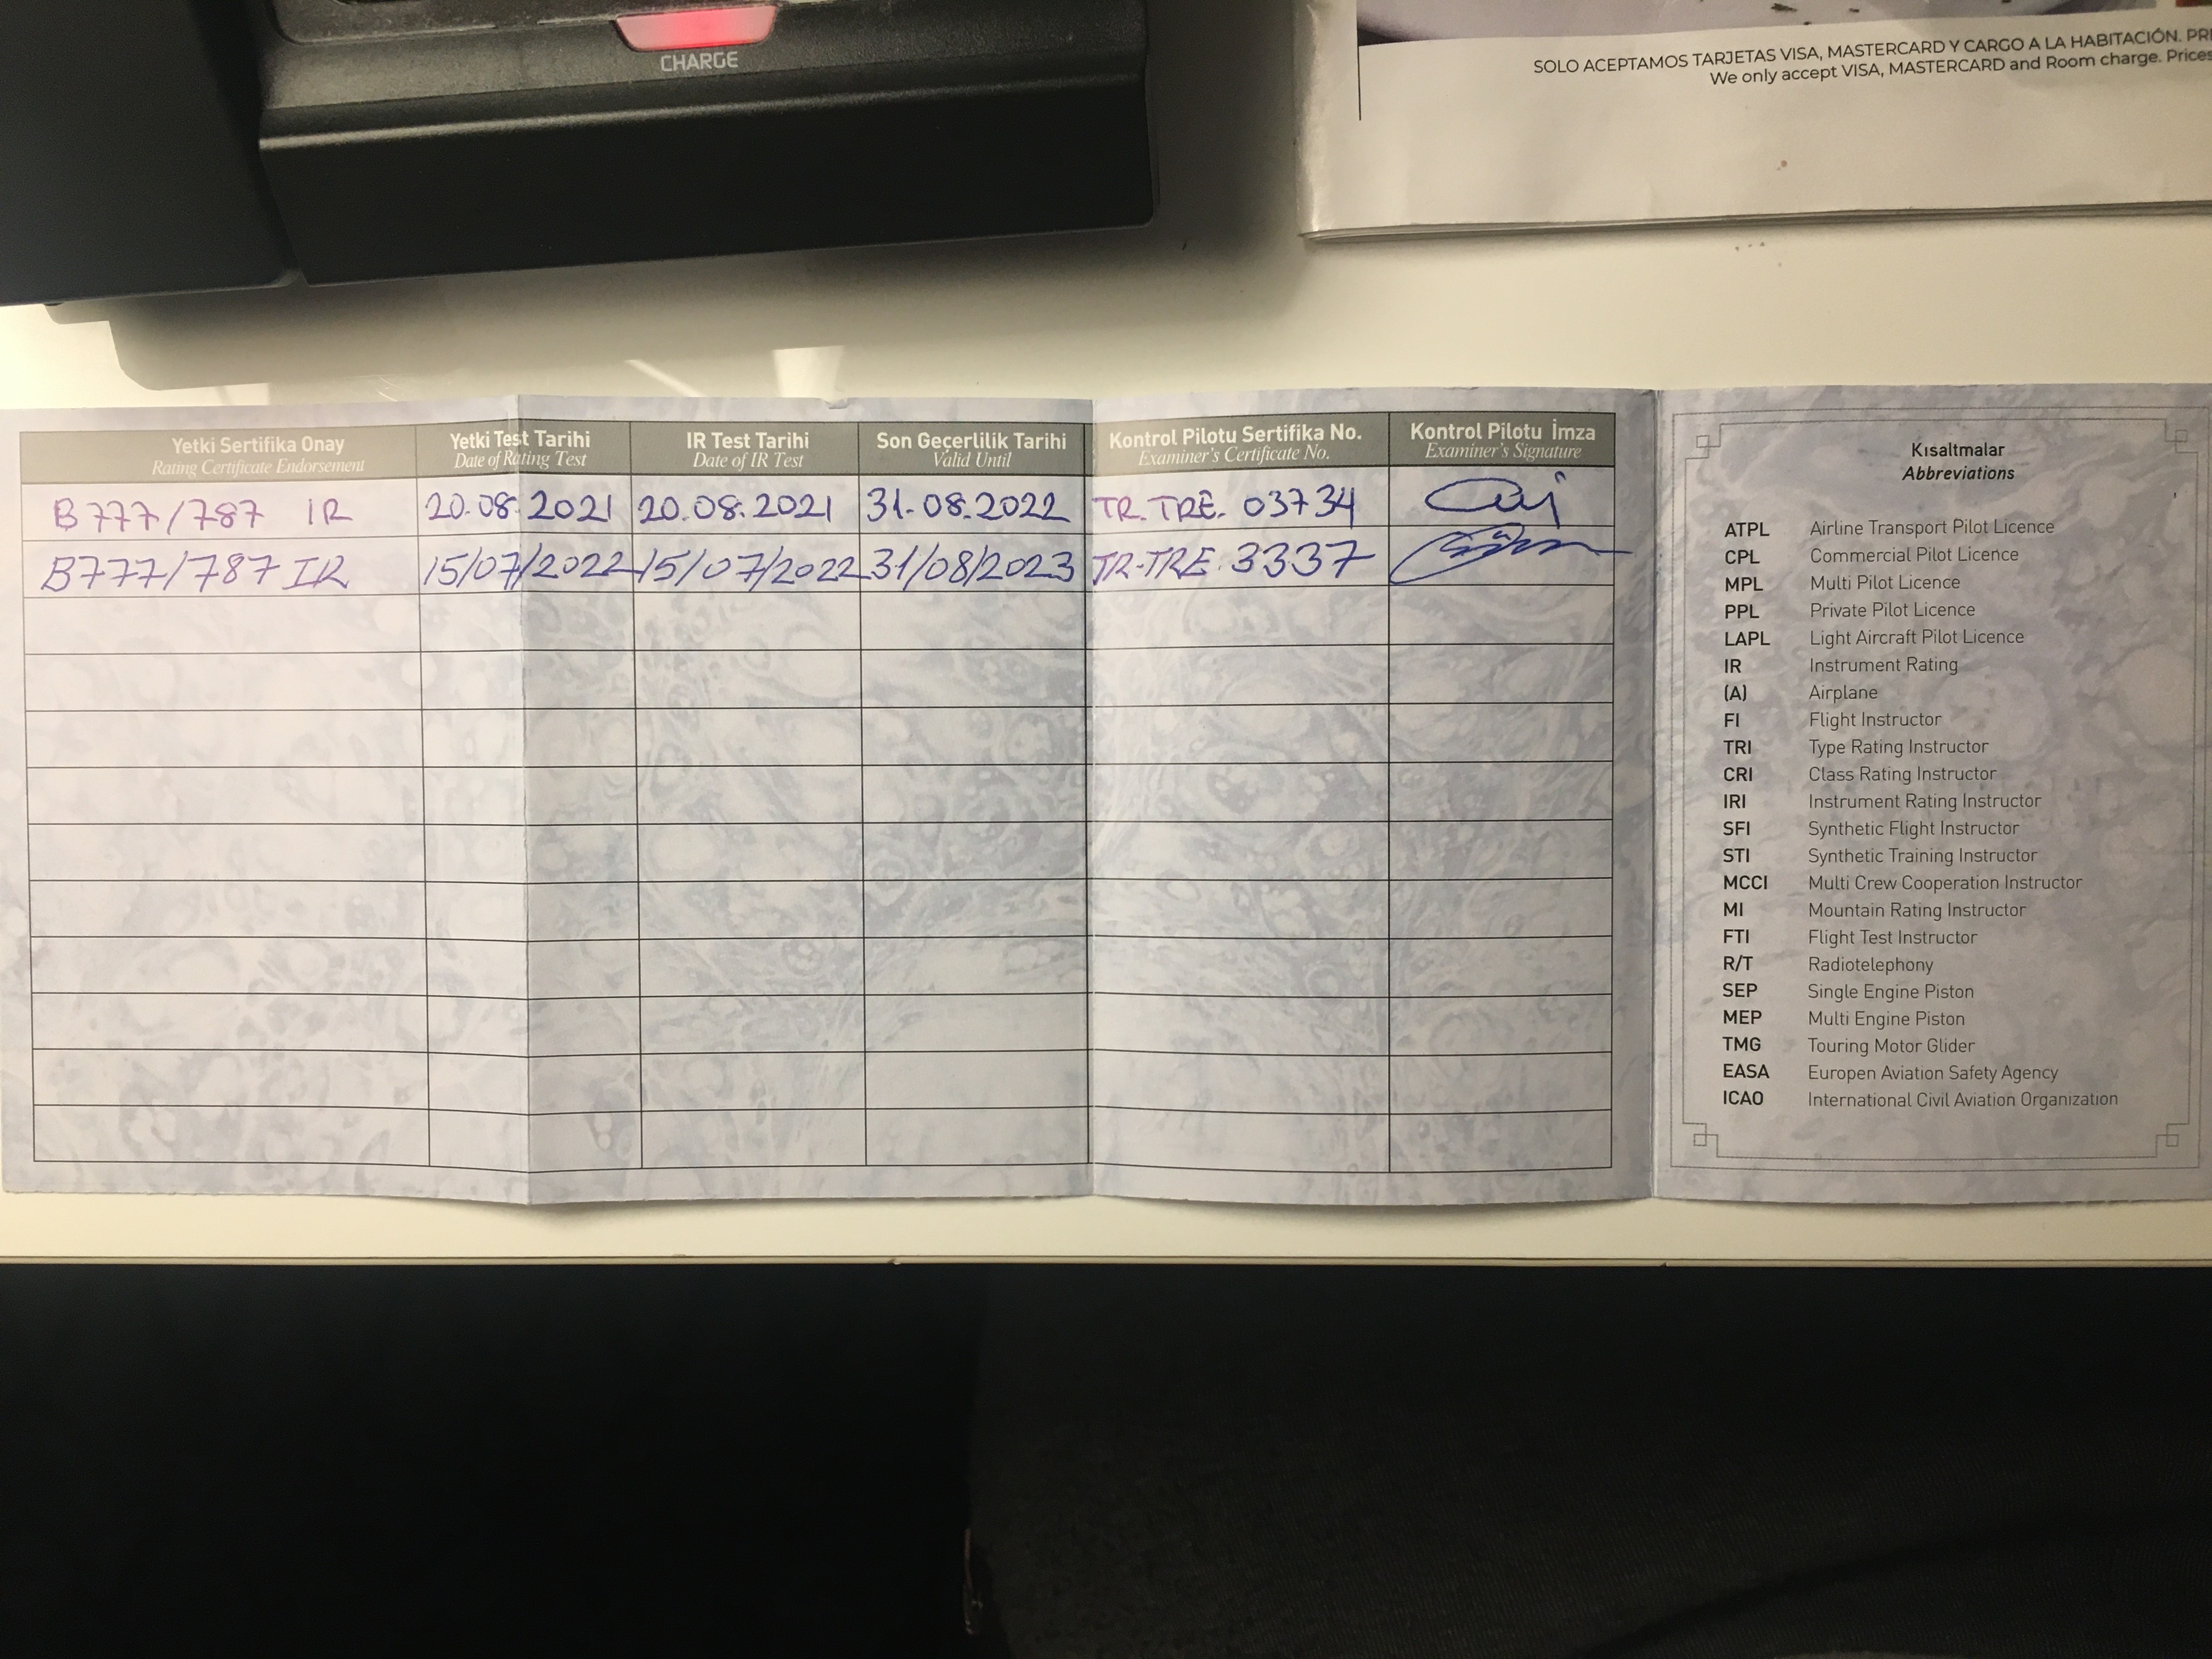 CHARGE
SOLO ACEPTAMOS TARJETAS VISA, MASTERCARD Y CARGO A LA HABITACIÓN.
We only accept VISA, MASTERCARD and Room charge. Prices
Yetki Sertifika Onay
Rating Certificate Endorsement
Yetki Test Tarihi
Date of Rating Test
IR Test Tarihi
Date of IR Test
Son Geçerlilik Tarihi
Valid Until
Kontrol Pilotu Sertifika No.
Examiner's Certificate No.
Kontrol Pilotu İmza
Examiner's Signature
B777/787 IR 20.08.2021 20.08.2021 31.08.2022 TR.TRE. 03734
B777/787 IR 15/07/2022 15/07/2022 31/08/2023 TR-TRE. 3337
Kısaltmalar
Abbreviations
ATPL Airline Transport Pilot Licence
CPL Commercial Pilot Licence
MPL Multi Pilot Licence
PPL Private Pilot Licence
LAPL Light Aircraft Pilot Licence
IR Instrument Rating
(A) Airplane
FI Flight Instructor
TRI Type Rating Instructor
CRI Class Rating Instructor
IRI Instrument Rating Instructor
SFI Synthetic Flight Instructor
STI Synthetic Training Instructor
MCCI Multi Crew Cooperation Instructor
MI Mountain Rating Instructor
FTI Flight Test Instructor
R/T Radiotelephony
SEP Single Engine Piston
MEP Multi Engine Piston
TMG Touring Motor Glider
EASA Europen Aviation Safety Agency
ICAO International Civil Aviation Organization